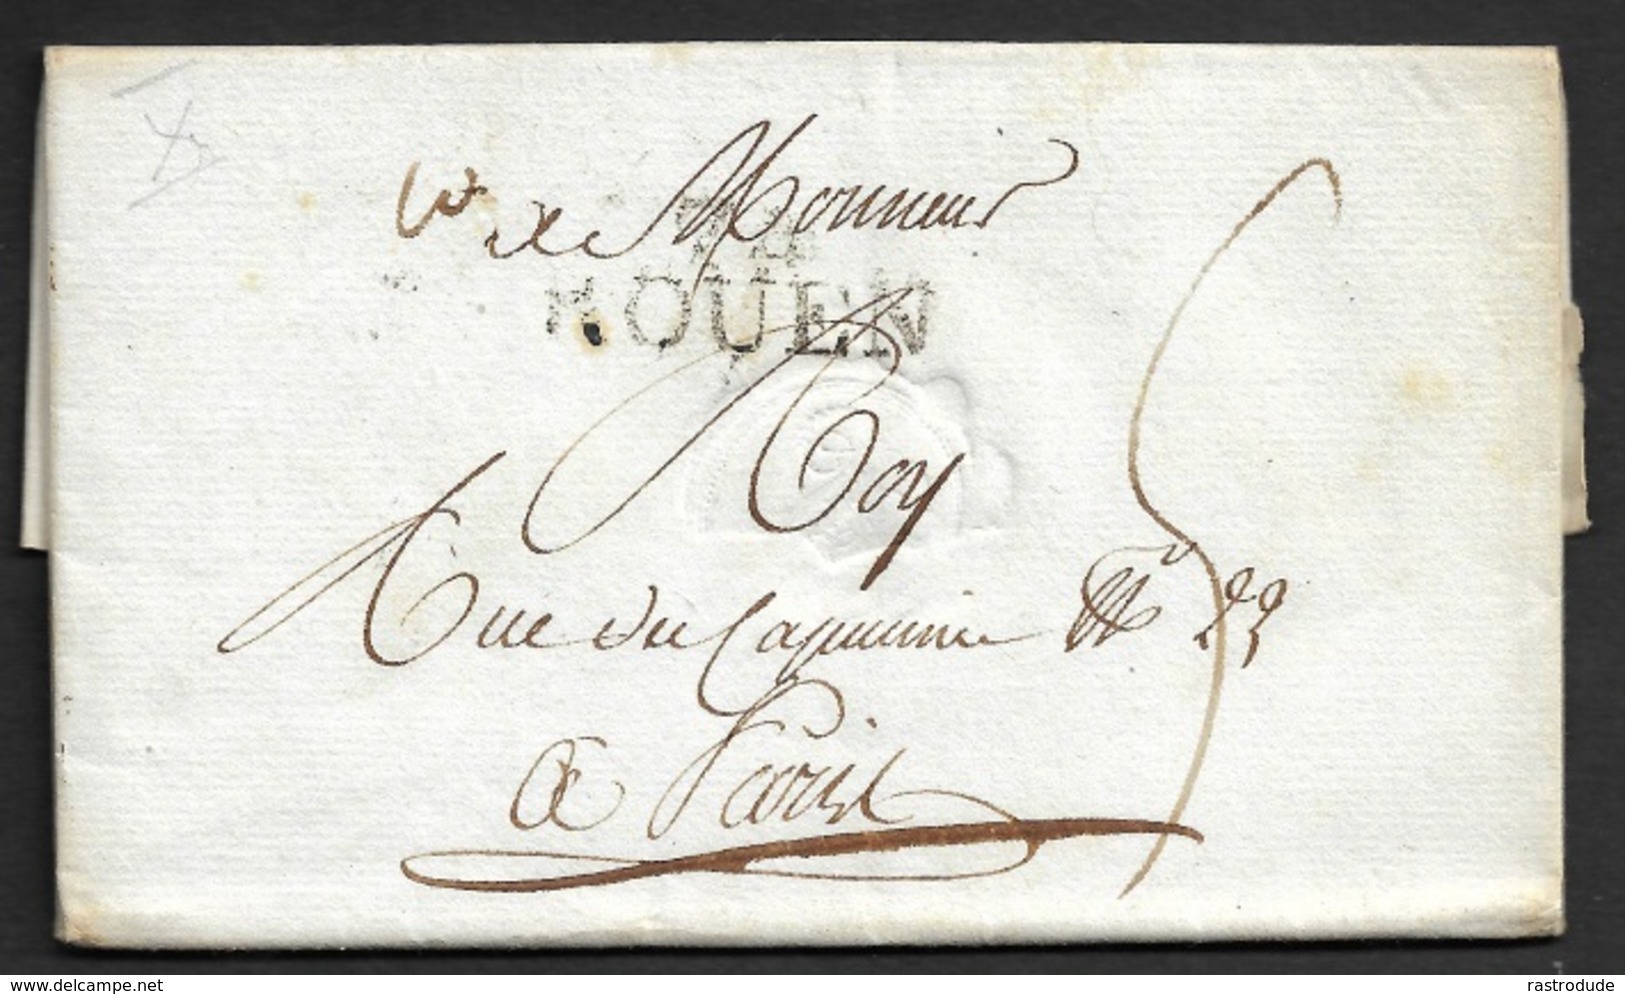 de Monsieur
74
ROUEN
Roy
Rue du Capucine N° 23
a Paris
www.delcampe.net
rastrodude